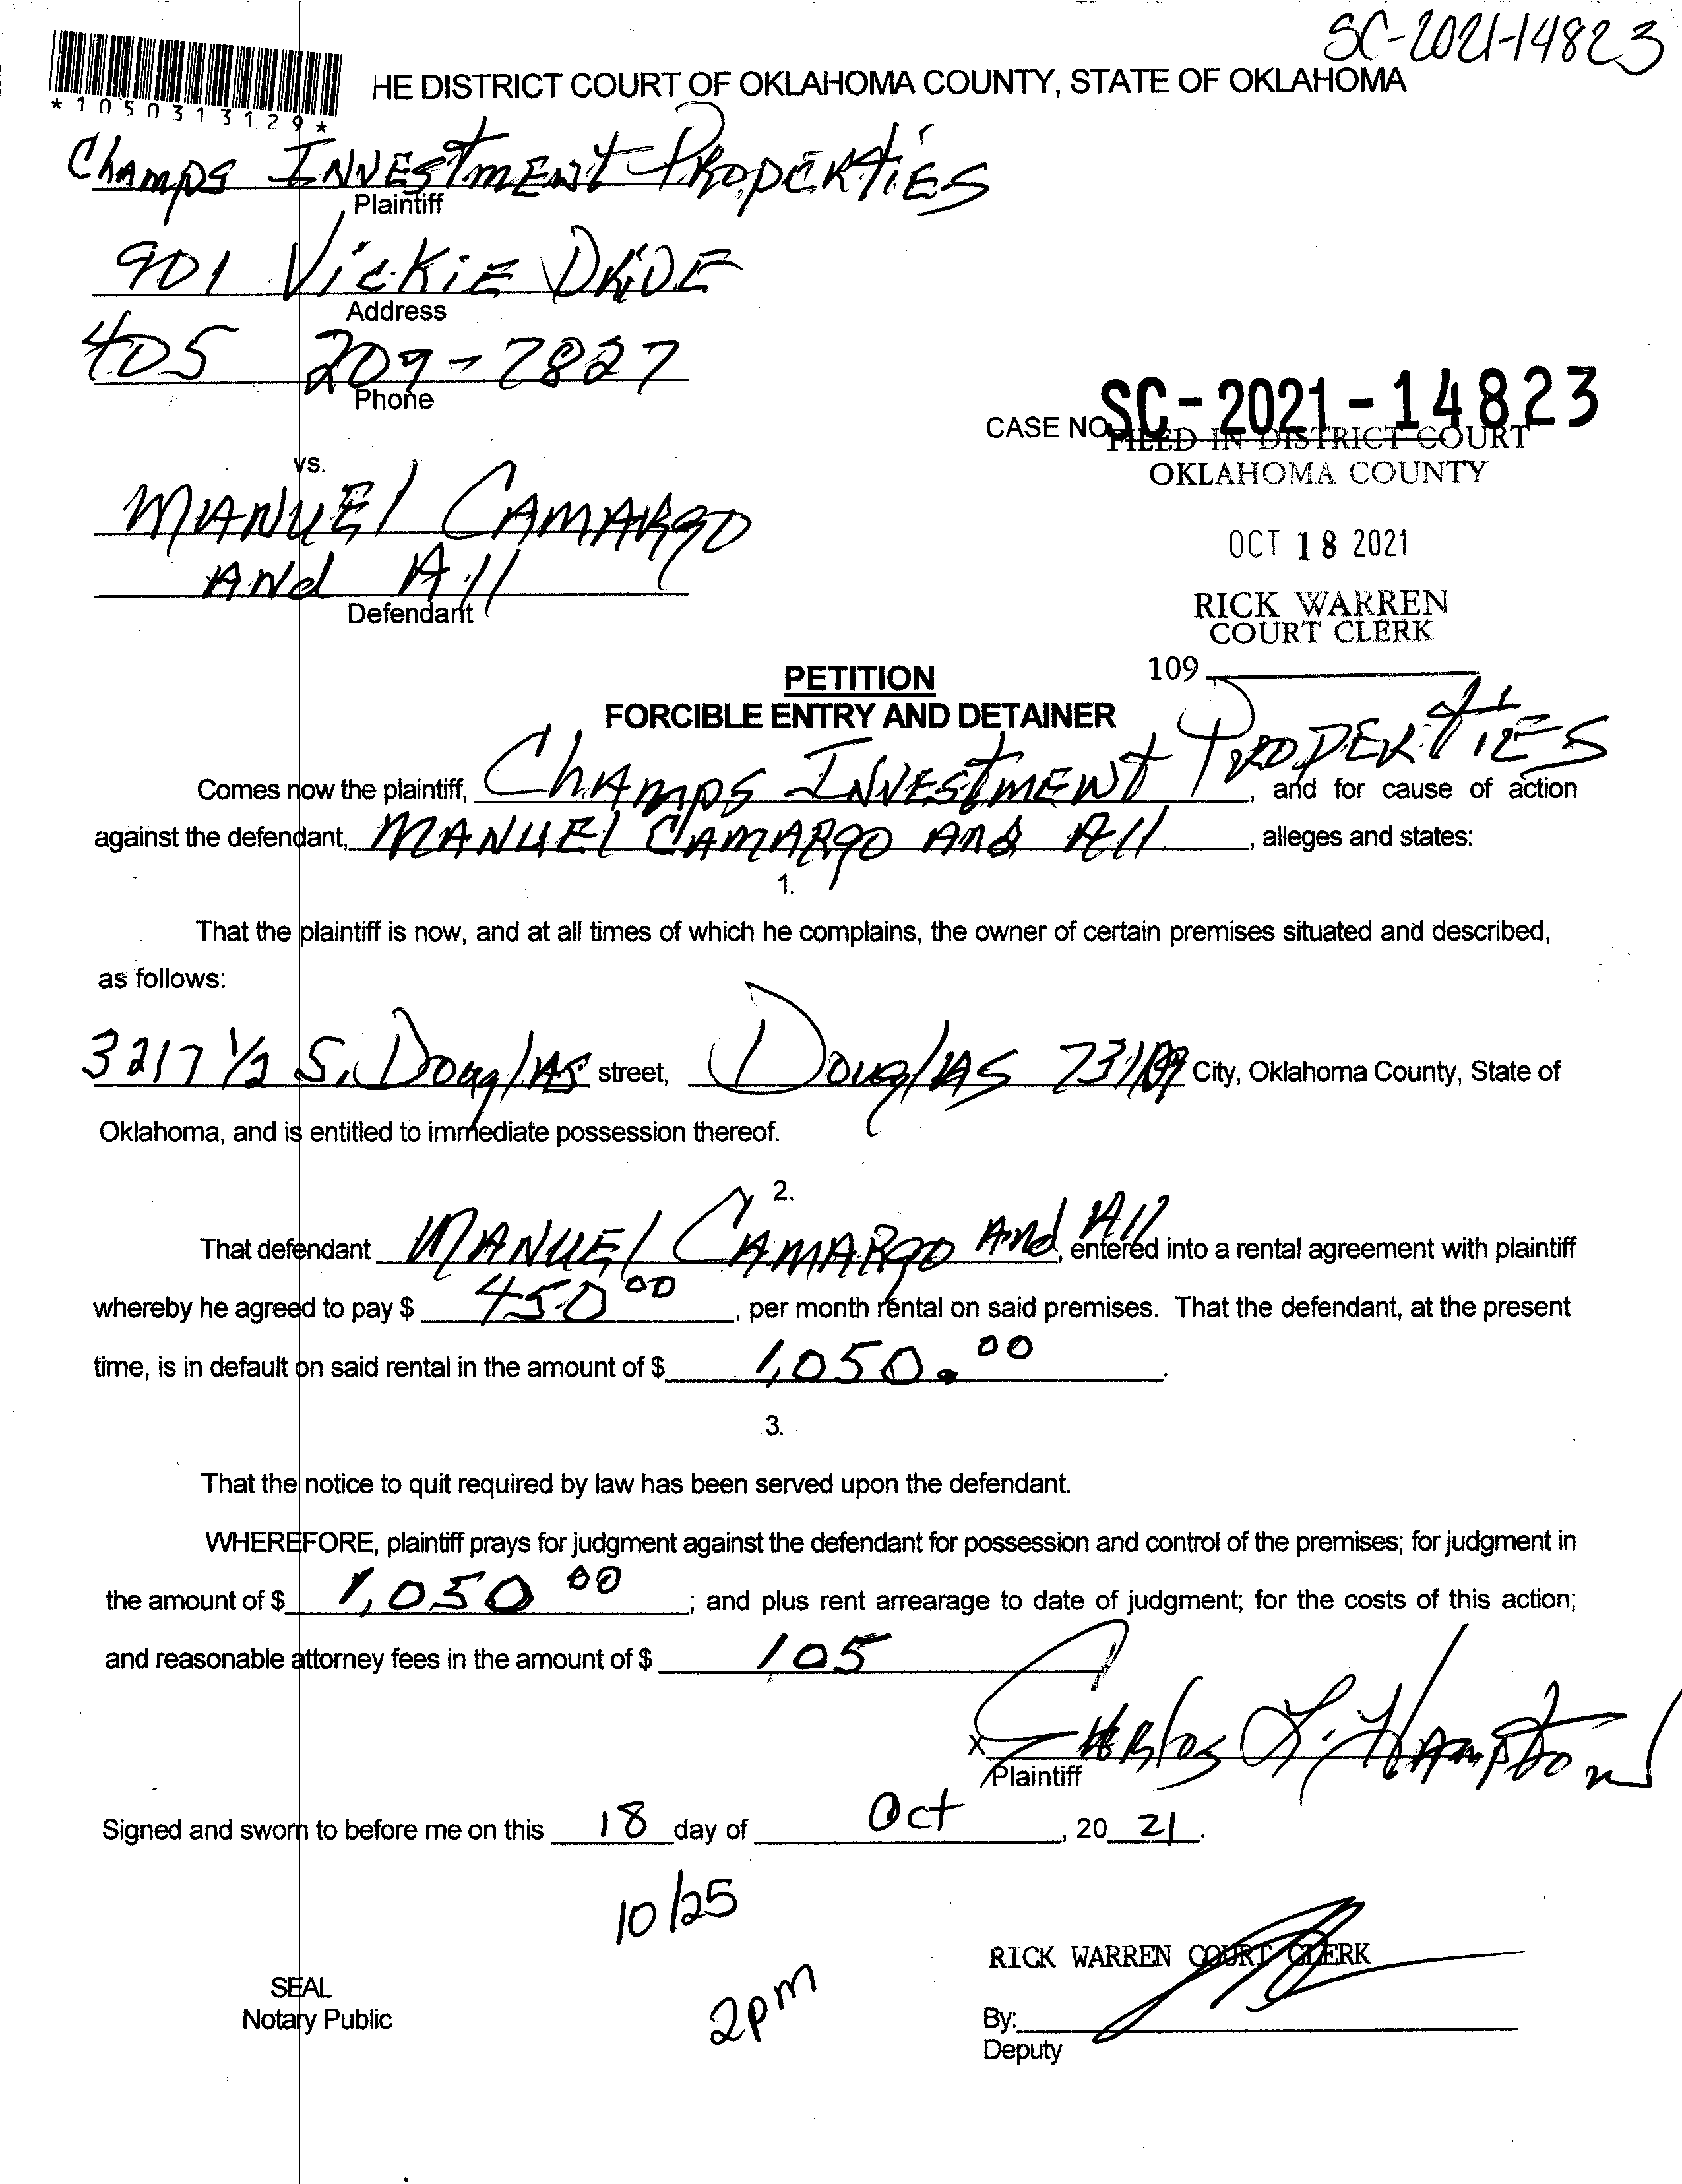 SC-2021-14823
*1050313129*
HE DISTRICT COURT OF OKLAHOMA COUNTY, STATE OF OKLAHOMA
Champs Investment Properties
Plaintiff
901 Vickie Drive
Address
405 209-7827
Phone
CASE NO SC-2021-14823
FILED IN DISTRICT COURT
OKLAHOMA COUNTY
vs.
Manuel Camargo
OCT 18 2021
And All
Defendant
RICK WARREN
COURT CLERK
109
PETITION
FORCIBLE ENTRY AND DETAINER
Comes now the plaintiff, Champs Investment Properties, and for cause of action
against the defendant, Manuel Camargo and All, alleges and states:
1.
That the plaintiff is now, and at all times of which he complains, the owner of certain premises situated and described,
as follows:
3217 1/2 S. Douglas street, Douglas 73109 City, Oklahoma County, State of
Oklahoma, and is entitled to immediate possession thereof.
2.
That defendant Manuel Camargo And All, entered into a rental agreement with plaintiff
whereby he agreed to pay $ 450 00, per month rental on said premises. That the defendant, at the present
time, is in default on said rental in the amount of $ 1,050.00.
3.
That the notice to quit required by law has been served upon the defendant.
WHEREFORE, plaintiff prays for judgment against the defendant for possession and control of the premises; for judgment in
the amount of $ 1,050 00; and plus rent arrearage to date of judgment; for the costs of this action;
and reasonable attorney fees in the amount of $ 105
X Charlos L. Hampton
Plaintiff
Signed and sworn to before me on this 18 day of Oct, 20 21.
10/25
RICK WARREN COURT CLERK
SEAL
Notary Public
2pm
By:
Deputy